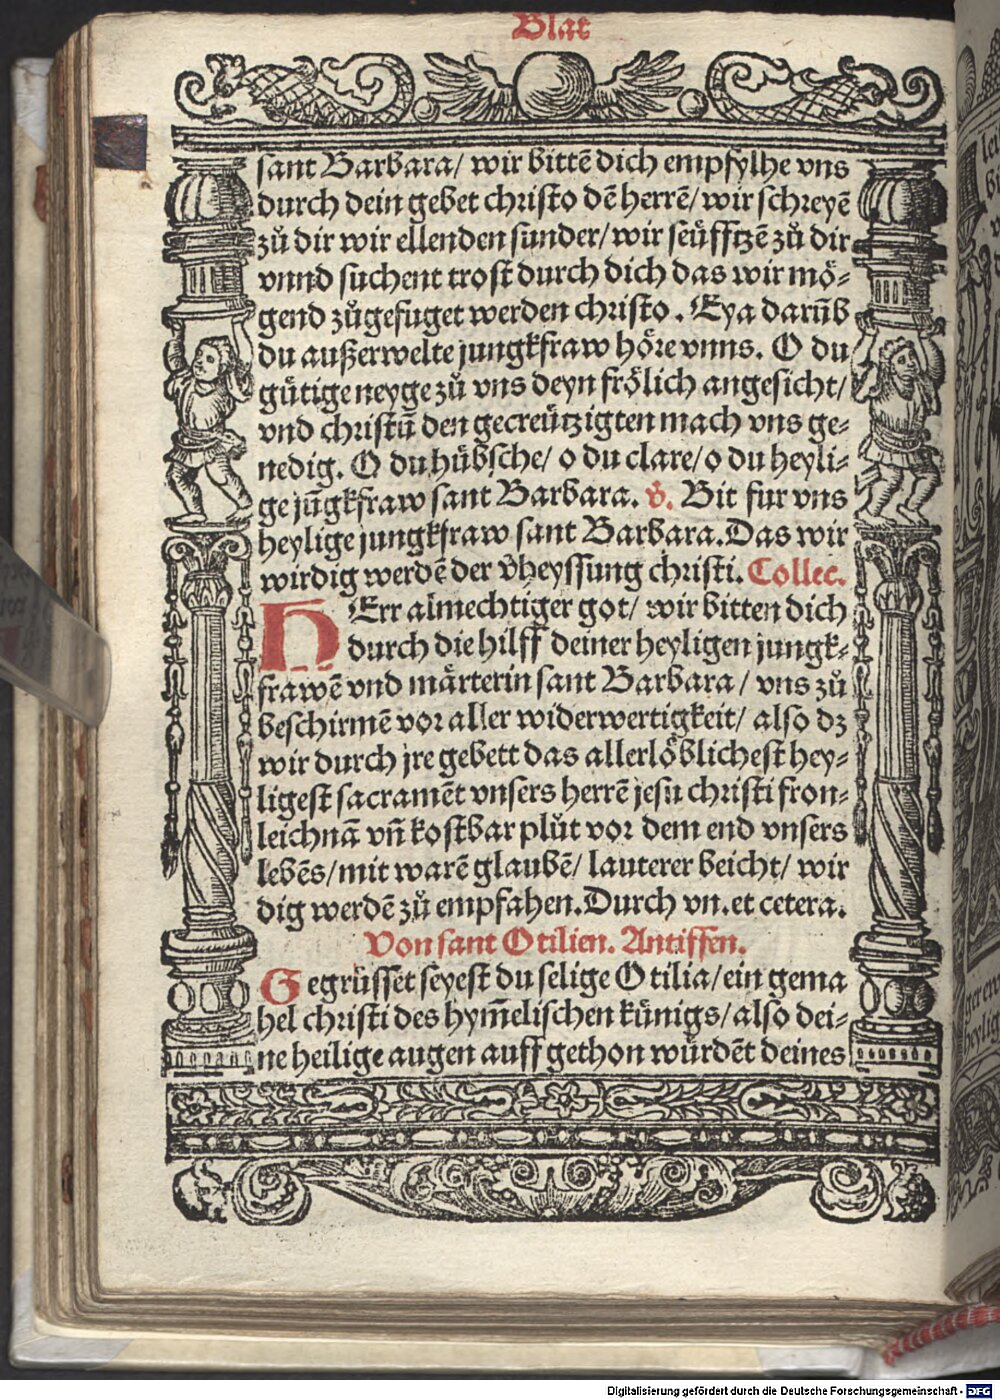 Blat
sant Barbara/ wir bittē dich empfylhe vns
durch dein gebet christo dē herrē/ wir schreyē
zů dir wir ellenden sunder/ wir seüfftzē zů dir
vnnd suchent trost durch dich das wir mö⸗
gend zůgefuget werden christo. Eya darūb
du außerwelte jungkfraw höre vnns. O du
gütige neyge zů vns deyn frölich angesicht/
vnd christū den gecreützigten mach vns ge⸗
nedig. O du hübsche/ o du clare/ o du heyli⸗
ge jūgkfraw sant Barbara. v̄. Bit fur vns
heylige jungkfraw sant Barbara. Das wir
wirdig werdē der v̄heyssung christi. Collec.
HErr almechtiger got/ wir bitten dich
durch die hilff deiner heyligen jungk⸗
frawē vnd märterin sant Barbara/ vns zů
beschirmē vor aller widerwertigkeit/ also dz
wir durch jre gebett das allerlöblichest hey⸗
ligest sacramēt vnsers herrē jesu christi fron⸗
leichnā vn̄ kostbar plůt vor dem end vnsers
lebēs/ mit warē glaubē/ lauterer beicht/ wir
dig werdē zů empfahen. Durch vn. et cetera.
Von sant Otilien. Antiffen.
Gegrüsset seyest du selige Otilia/ ein gema
hel christi des hym̄elischen künigs/ also dei⸗
ne heilige augen auff gethon würdēt deines
Digitalisierung gefördert durch die Deutsche Forschungsgemeinschaft - DFG